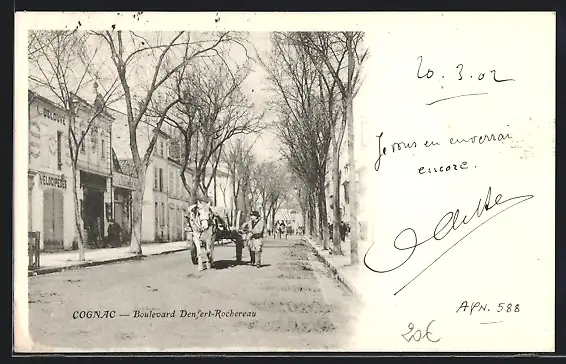 L. DELOUVÉ
VÉLOCIPÈDES
20.3.02
Je vous en enverrai
encore.
Odette
COGNAC — Boulevard Denfert-Rochereau
APN. 588
20€